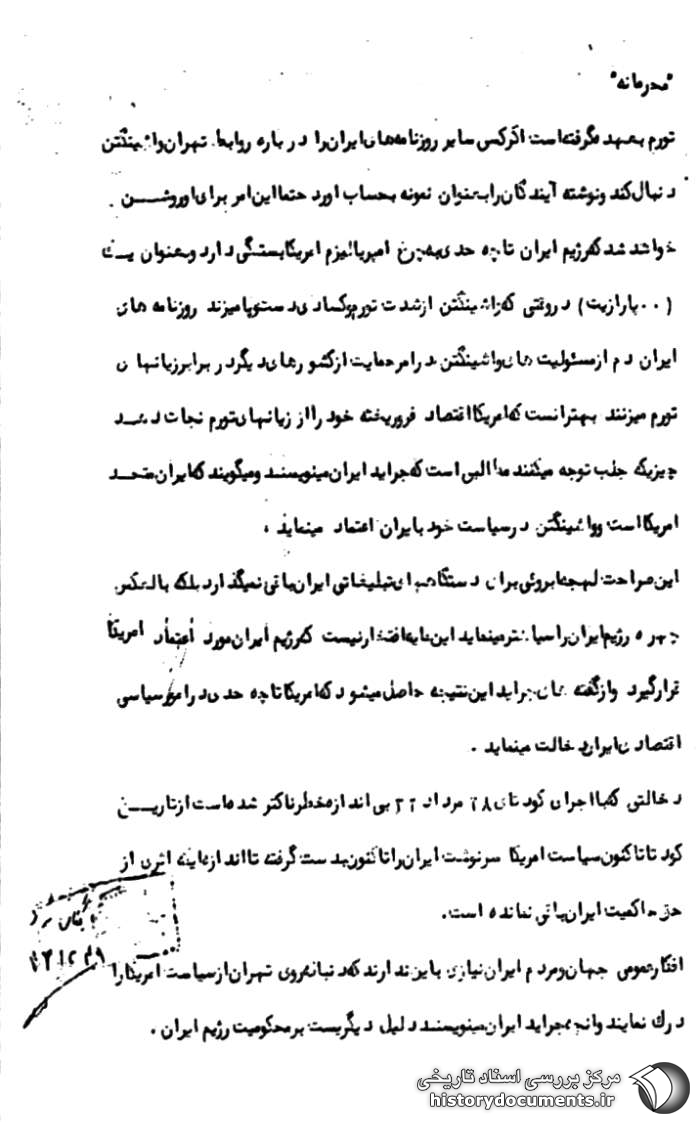 "محرمانه"
تورم بعهده گرفته است اگر کسی سایر روزنامه های ایران را در باره روابط تهران واشینگتن
دنبال کند ونوشته آیندگان را بعنوان نمونه بحساب اورد حتما این امر برای او روشن
خواهد شد که رژیم ایران تا چه حدی بچرخ امپریالیزم امریکا بستگی دارد و بعنوان یک
(۰۰پارازیت) در وقتی که واشینگتن از شدت تورم وکسادی دست و پا میزند روزنامه های
ایران دم از مسئولیت های واشینگتن در امر حمایت از کشورهای دیگر در برابر زیانهای
تورم میزنند بهتر انست که امریکا اقتصاد فروریخته خود را از زیانهای تورم نجات دهد
چیزیکه جلب توجه میکند مطالبی است که جراید ایران مینویسند ومیگویند که ایران متحد
امریکا است وواشینگتن در سیاست خود بایران اعتماد مینماید .
این صراحت لهجه ابروئی برای دستگاههای تبلیغاتی ایران باقی نمیگذارد بلکه بالعکس
چهره رژیم ایران را سیاهتر مینماید این مایه افتخار نیست که رژیم ایران مورد اعتماد امریکا
قرار گیرد وازگفته های جراید این نتیجه حاصل میشود که امریکا تا چه حدی در امور سیاسی
اقتصادی ایران دخالت مینماید .
دخالتی که با اجرای کودتای ۲۸ مرداد ۳۲ بی اندازه خطرناکتر شده است از تاریخ
کودتا تاکنون سیاست امریکا سرنوشت ایران را تاکنون بدست گرفته تا اندازه ایکه اثری از
حق حاکمیت ایران باقی نمانده است.
افکار عمومی جهان ومردم ایران نیازی باین ندارند که دنباله روی تهران از سیاست امریکا را
درك نمایند وانچه جراید ایران مینویسند دلیل دیگریست بر محکومیت رژیم ایران .
مرکز بررسی اسناد تاریخی
historydocuments.ir